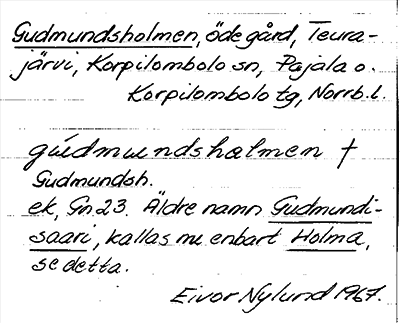 Gudmundsholmen, öde gård, Teura-
järvi, Korpilombolo sn, Pajala o.
Korpilombolo tg, Norrb. l.
gúdmundshælmen †
Gudmundsh.
ek, Gn 23. Äldre namn Gudmundi-
saari, kallas nu enbart Holma,
se detta.
Eivor Nylund 1967.